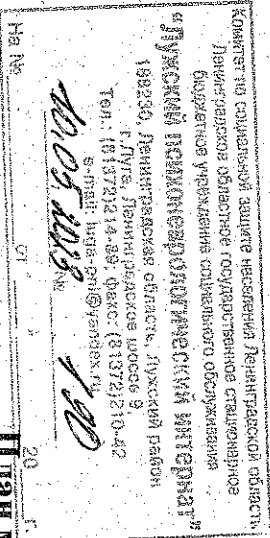 Комитет по социальной защите населения Ленинградской области
Ленинградское областное государственное стационарное
бюджетное учреждение социального обслуживания
"Лужский психоневрологический интернат"
188230, Ленинградская область, Лужский район
г. Луга, Ленинградское шоссе 9
Тел.: (81372)2-14-89; факс: (81372)210-42
e-mail: luga-pni@yandex.ru
10.05.2013 № 190
На № от 20 г
План